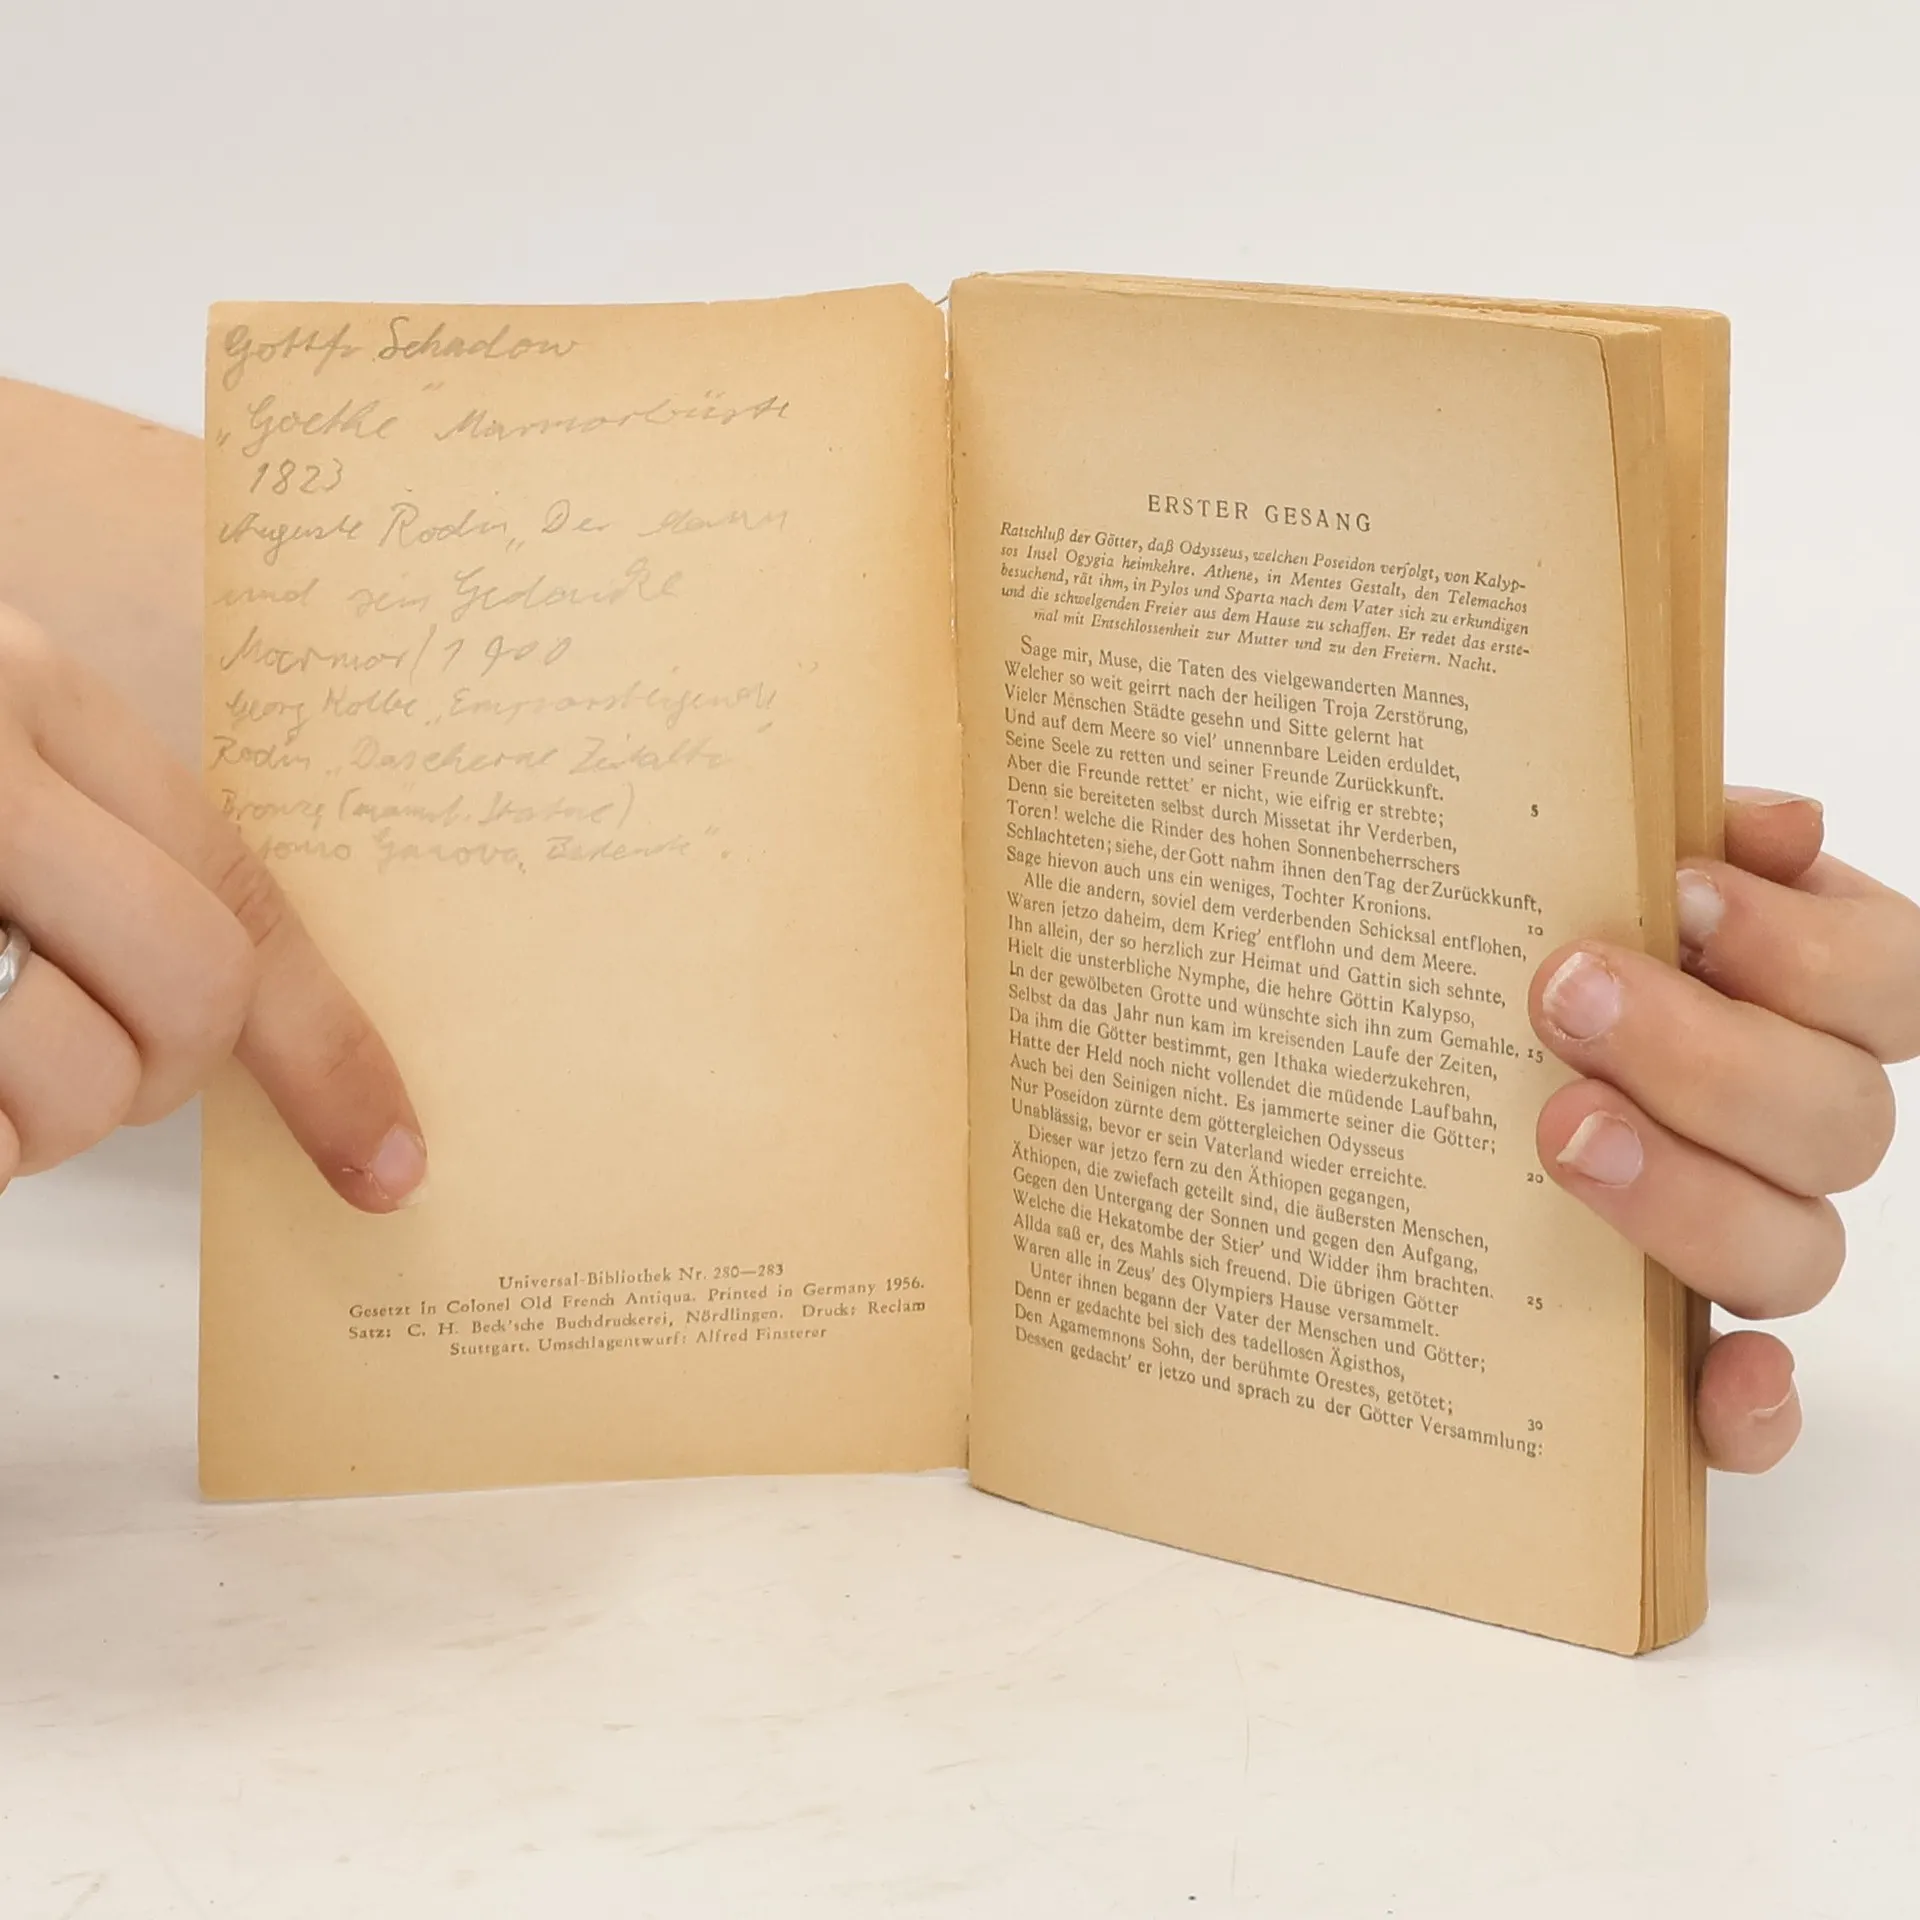 Gottfr. Schadow
„Goethe" Marmorbüste
1823
Auguste Rodin „Der Mann
und sein Gedanke
Marmor / 1900
Georg Kolbe „Emporsteigende"
Rodin „Das eherne Zeitalter"
Bronze (männl. Statue)
Canova,
Universal-Bibliothek Nr. 280—283
Gesetzt in Colonel Old French Antiqua. Printed in Germany 1956.
Satz: C. H. Beck'sche Buchdruckerei, Nördlingen. Druck: Reclam
Stuttgart. Umschlagentwurf: Alfred Finsterer
ERSTER GESANG
Ratschluß der Götter, daß Odysseus, welchen Poseidon verfolgt, von Kalyp-
sos Insel Ogygia heimkehre. Athene, in Mentes Gestalt, den Telemachos
besuchend, rät ihm, in Pylos und Sparta nach dem Vater sich zu erkundigen
und die schwelgenden Freier aus dem Hause zu schaffen. Er redet das erste-
mal mit Entschlossenheit zur Mutter und zu den Freiern. Nacht.
Sage mir, Muse, die Taten des vielgewanderten Mannes,
Welcher so weit geirrt nach der heiligen Troja Zerstörung,
Vieler Menschen Städte gesehn und Sitte gelernt hat
Und auf dem Meere so viel' unnennbare Leiden erduldet,
Seine Seele zu retten und seiner Freunde Zurückkunft. 5
Aber die Freunde rettet' er nicht, wie eifrig er strebte;
Denn sie bereiteten selbst durch Missetat ihr Verderben,
Toren! welche die Rinder des hohen Sonnenbeherrschers
Schlachteten; siehe, der Gott nahm ihnen den Tag der Zurückkunft,
Sage hievon auch uns ein weniges, Tochter Kronions. 10
Alle die andern, soviel dem verderbenden Schicksal entflohen,
Waren jetzo daheim, dem Krieg' entflohn und dem Meere.
Ihn allein, der so herzlich zur Heimat und Gattin sich sehnte,
Hielt die unsterbliche Nymphe, die hehre Göttin Kalypso,
In der gewölbeten Grotte und wünschte sich ihn zum Gemahle. 15
Selbst da das Jahr nun kam im kreisenden Laufe der Zeiten,
Da ihm die Götter bestimmt, gen Ithaka wiederzukehren,
Hatte der Held noch nicht vollendet die müdende Laufbahn,
Auch bei den Seinigen nicht. Es jammerte seiner die Götter;
Nur Poseidon zürnte dem göttergleichen Odysseus 20
Unablässig, bevor er sein Vaterland wieder erreichte.
Dieser war jetzo fern zu den Äthiopen gegangen,
Äthiopen, die zwiefach geteilt sind, die äußersten Menschen,
Gegen den Untergang der Sonnen und gegen den Aufgang,
Welche die Hekatombe der Stier' und Widder ihm brachten. 25
Allda saß er, des Mahls sich freuend. Die übrigen Götter
Waren alle in Zeus' des Olympiers Hause versammelt.
Unter ihnen begann der Vater der Menschen und Götter;
Denn er gedachte bei sich des tadellosen Ägisthos,
Den Agamemnons Sohn, der berühmte Orestes, getötet; 30
Dessen gedacht' er jetzo und sprach zu der Götter Versammlung: